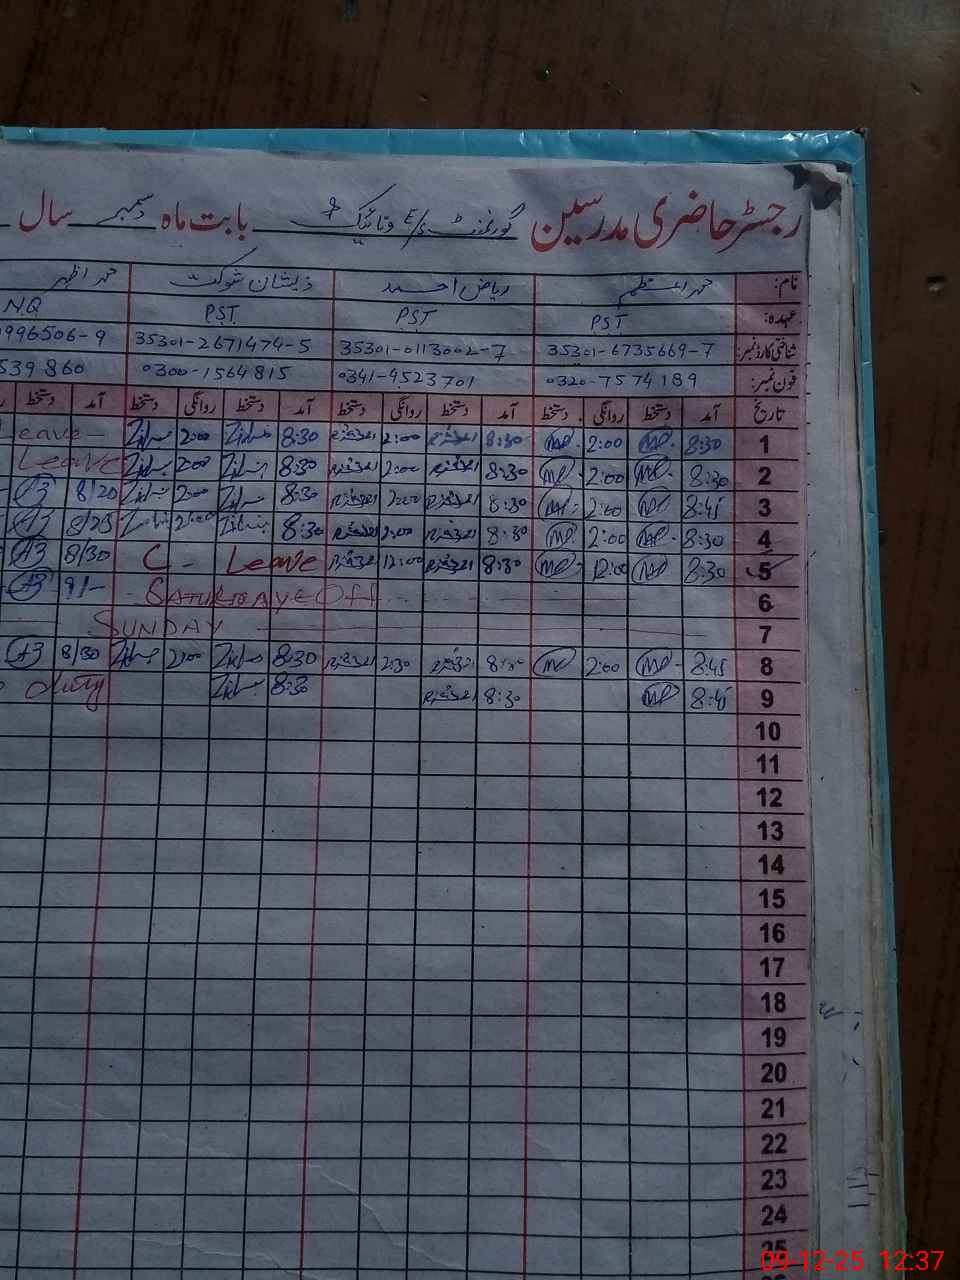 رجسٹر حاضری مدرسین گورنمنٹ بابت ماہ دسمبر سال
نام: محمد اعظم ریاض احمد ذیشان شوکت محمد اظہر
عہدہ: PST PST PST N.Q
شناختی کارڈ نمبر: 35301-6735669-7 35301-0113002-7 35301-2671474-5 996506-9
فون نمبر: 0320-7574189 0341-4523701 0300-1564815 539860
تاریخ آمد دستخط روانگی دستخط آمد دستخط روانگی دستخط آمد دستخط روانگی دستخط آمد دستخط
1 8:30 2:00 8:30 2:00 8:30 2:00 Leave
2 8:30 2:00 8:30 2:00 8:30 2:00 Leave
3 8:45 2:00 8:30 2:00 8:30 2:00 8/20
4 8:30 2:00 8:30 2:00 8:30 2:00 8/25
5 8:30 12:00 8:30 12:00 C- Leave 8/30
6 SATURDAY OFF 9/-
7 SUNDAY
8 8:45 2:00 8:30 2:30 8:30 2:00 8/30
9 8:45 8:30 8:30 duty
10
11
12
13
14
15
16
17
18
19
20
21
22
23
24
25
09-12-25 12:37